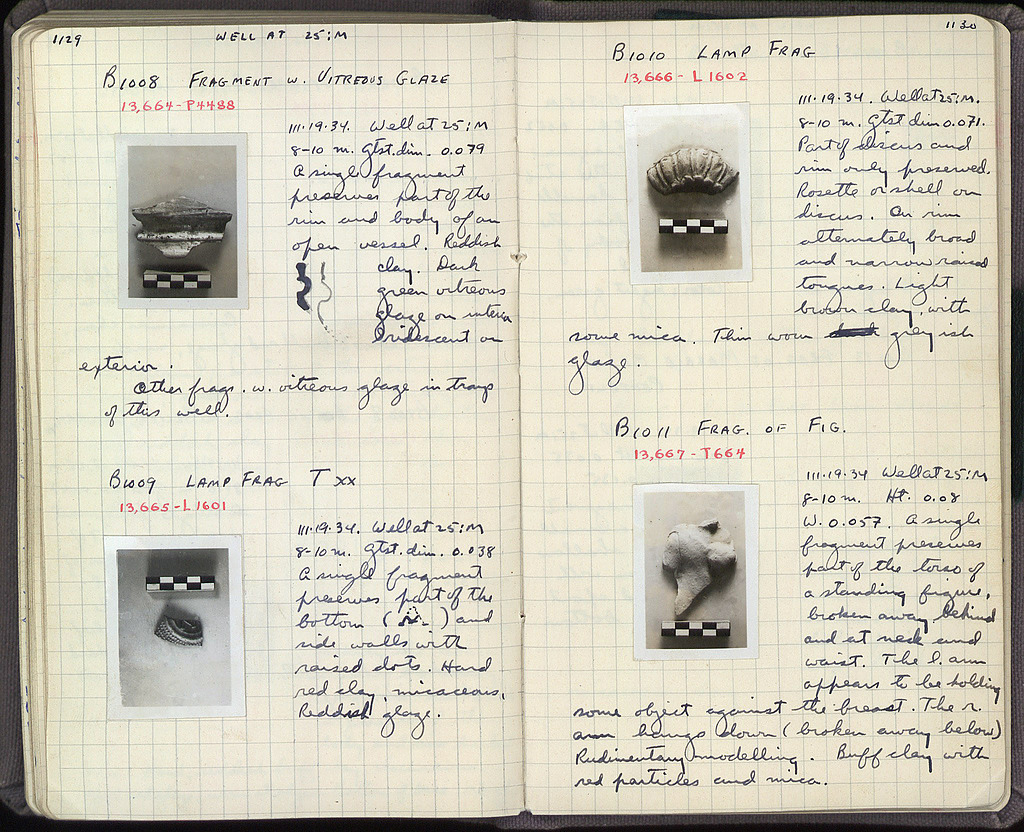 1129
WELL AT 25:M
B1008 FRAGMENT W. VITREOUS GLAZE
13,664-P4488
III·19·34. Well at 25:M
8-10 m. Gtst. dim. 0.079
A single fragment
preserves part of the
rim and body of an
open vessel. Reddish
clay. Dark
green vitreous
glaze on interior
Iridescent on
exterior.
Other frags. w. vitreous glaze in trays
of this well.
B1009 LAMP FRAG T XX
13,665-L1601
III·19·34. Well at 25:M
8-10 m. Gtst. dim. 0.038
A single fragment
preserves part of the
bottom ( ) and
side walls with
raised dots. Hard
red clay, micaceous.
Reddish glaze.
1130
B1010 LAMP FRAG
13,666-L1602
III·19·34. Well at 25:M.
8-10 m. Gtst dim 0.071.
Part of discus and
rim only preserved.
Rosette or shell on
discus. On rim
alternately broad
and narrow raised
tongues. Light
brown clay, with
some mica. Thin worn greyish
glaze.
B1011 FRAG. OF FIG.
13,667-T664
III·19·34 Well at 25:M
8-10 m. Ht. 0.08
W. 0.057. A single
fragment preserves
part of the torso of
a standing figure,
broken away behind
and at neck and
waist. The l. arm
appears to be holding
some object against the breast. The r.
arm hangs down (broken away below)
Rudimentary modelling. Buff clay with
red particles and mica.